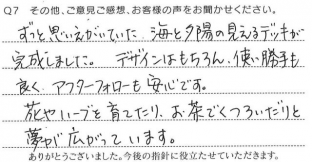 Q7 その他、ご意見ご感想、お客様の声をお聞かせください。
ずっと思いえがいていた 海と夕陽の見えるデッキが
完成しました。 デザインはもちろん、使い勝手も
良く、アフターフォローも安心です。
花やハーブを育てたり、お茶でくつろいだりと
夢が広がっています。
ありがとうございました。今後の指針に役立たせていただきます。